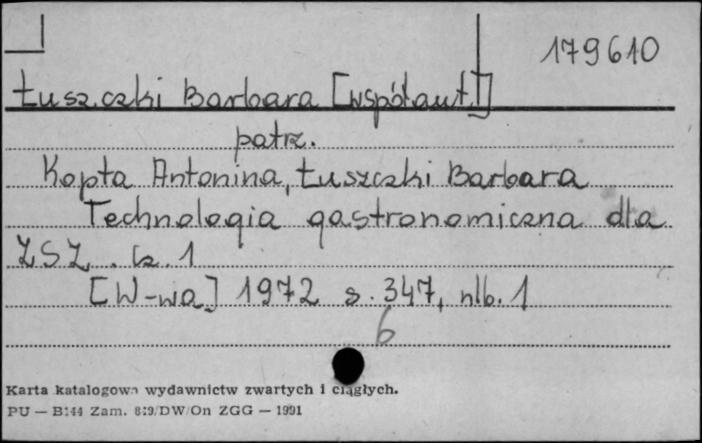 179610
Łuszczki Barbara [współaut.]
patrz.
Kopta Antonina, Łuszczki Barbara
Technologia gastronomiczna dla
ZSZ. Cz. 1
[W-wa] 1972 s. 347, nlb. 1
6
Karta katalogowa wydawnictw zwartych i ciągłych.
PU — B144 Zam. 819/DW/On ZGG — 1991